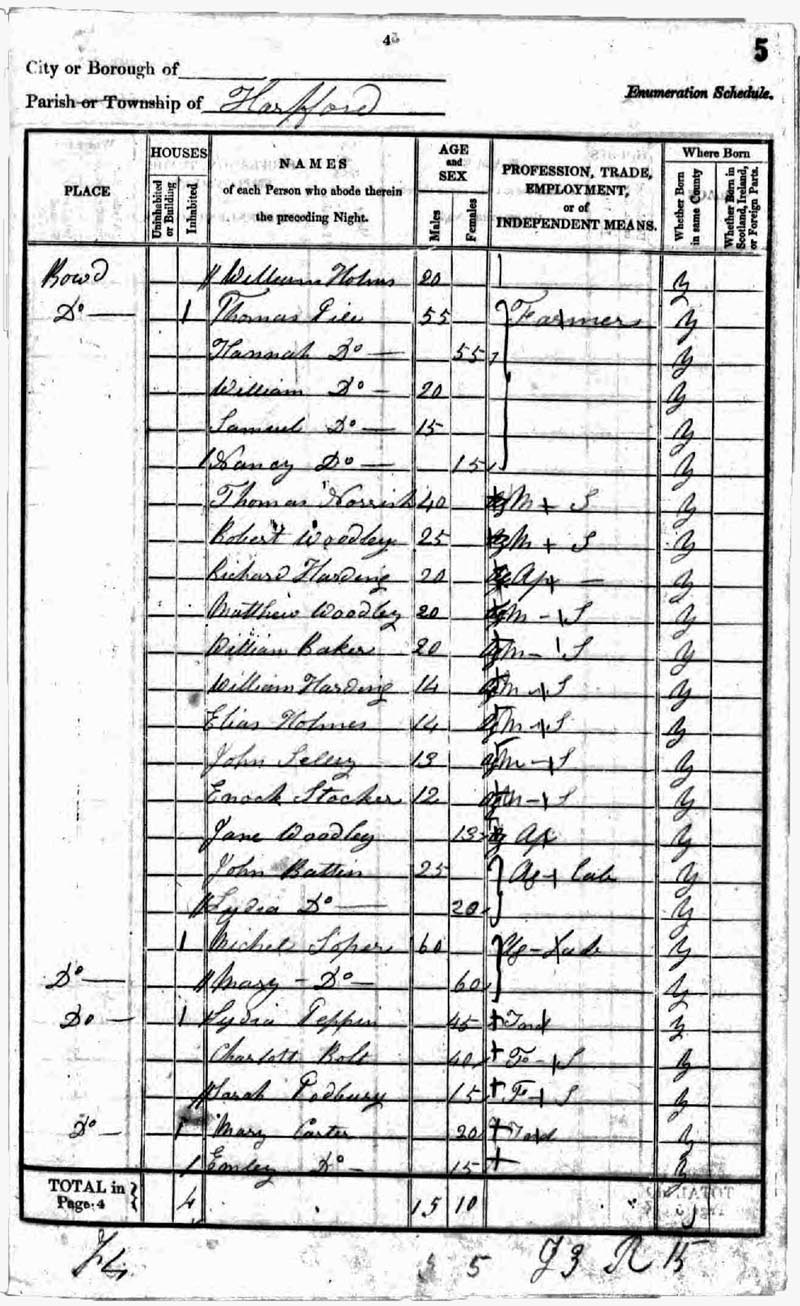 4
5
City or Borough of
Enumeration Schedule.
Parish or Township of Harpford
PLACE
HOUSES
Uninhabited or Building
Inhabited
NAMES
of each Person who abode therein
the preceding Night.
AGE
and
SEX
Males
Females
PROFESSION, TRADE,
EMPLOYMENT,
or of
INDEPENDENT MEANS.
Where Born
Whether Born in same County
Whether Born in Scotland, Ireland, or Foreign Parts.
Bowd // William Holms 20 y
Do 1 Thomas Pile 55 Farmer y
Hannah Do 55 y
William Do 20 y
Samuel Do 15 y
/ Nancy Do 15 y
Thomas Norrish 40 M S y
Robert Woodley 25 M S y
Richard Harding 20 Ap y
Matthew Woodley 20 M S y
William Baker 20 M S y
William Harding 14 M S y
Elias Holmes 14 M S y
John Selley 13 M S y
Enock Stocker 12 M S y
Jane Woodley 13 Ap y
John Battin 25 Ag Lab y
// Lydia Do 20 y
1 Michel Soper 60 Ag Lab y
Do // Mary Do 60 y
Do 1 Lydia Peppin 45 Ind y
Charlott Bolt 40 F S y
// Sarah Podbury 15 F S y
Do 1 Mary Carter 20 Ind y
Emley Do 15 y
TOTAL in Page 4 4 15 10
5 J3 R 15